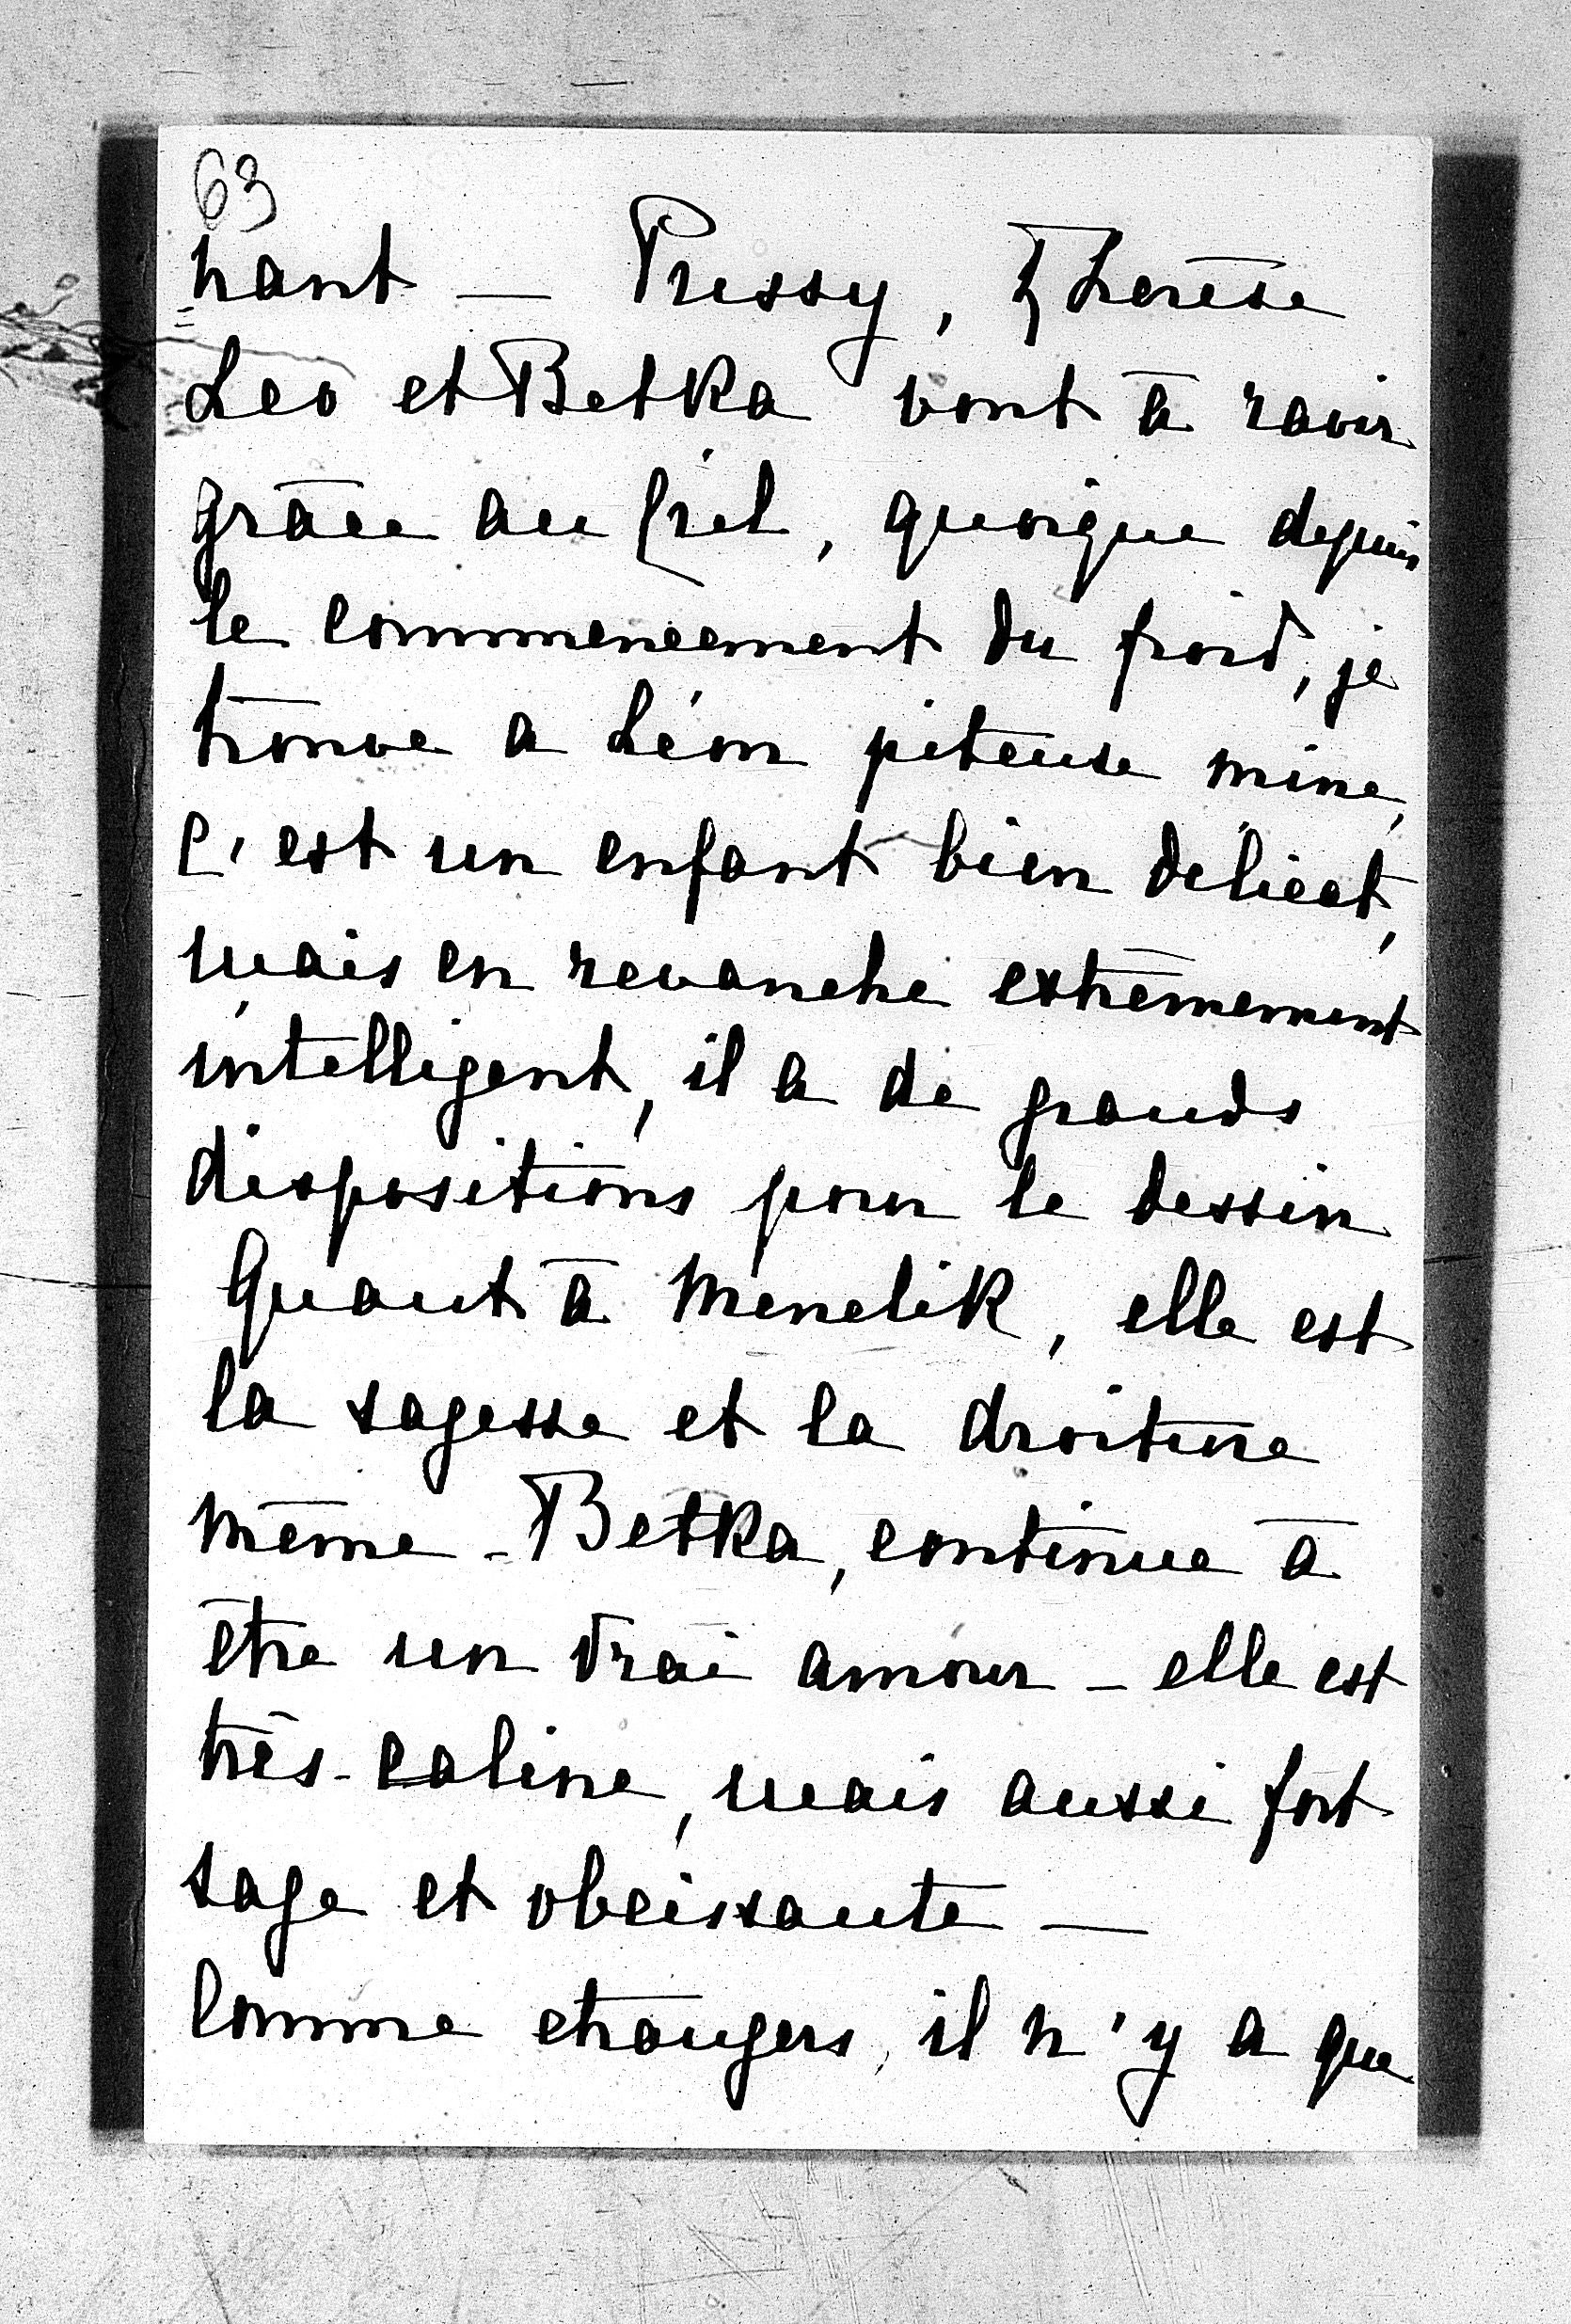 63
nant — Pussy, Thérèse
Leo et Betka vont à ravir
grâce au Ciel, quoique depuis
le commencement du froid, je
trouve a Léon piteuse mine,
c'est un enfant bien délicat,
mais en revanche extrêmement
intelligent, il a de grands
dispositions pour le dessin
Quant à Menelik, elle est
la sagesse et la droiture
même - Betka, continue à
être un vrai amour - elle est
très-caline, mais aussi fort
sage et obeissante —
Comme etrangers, il n'y a que